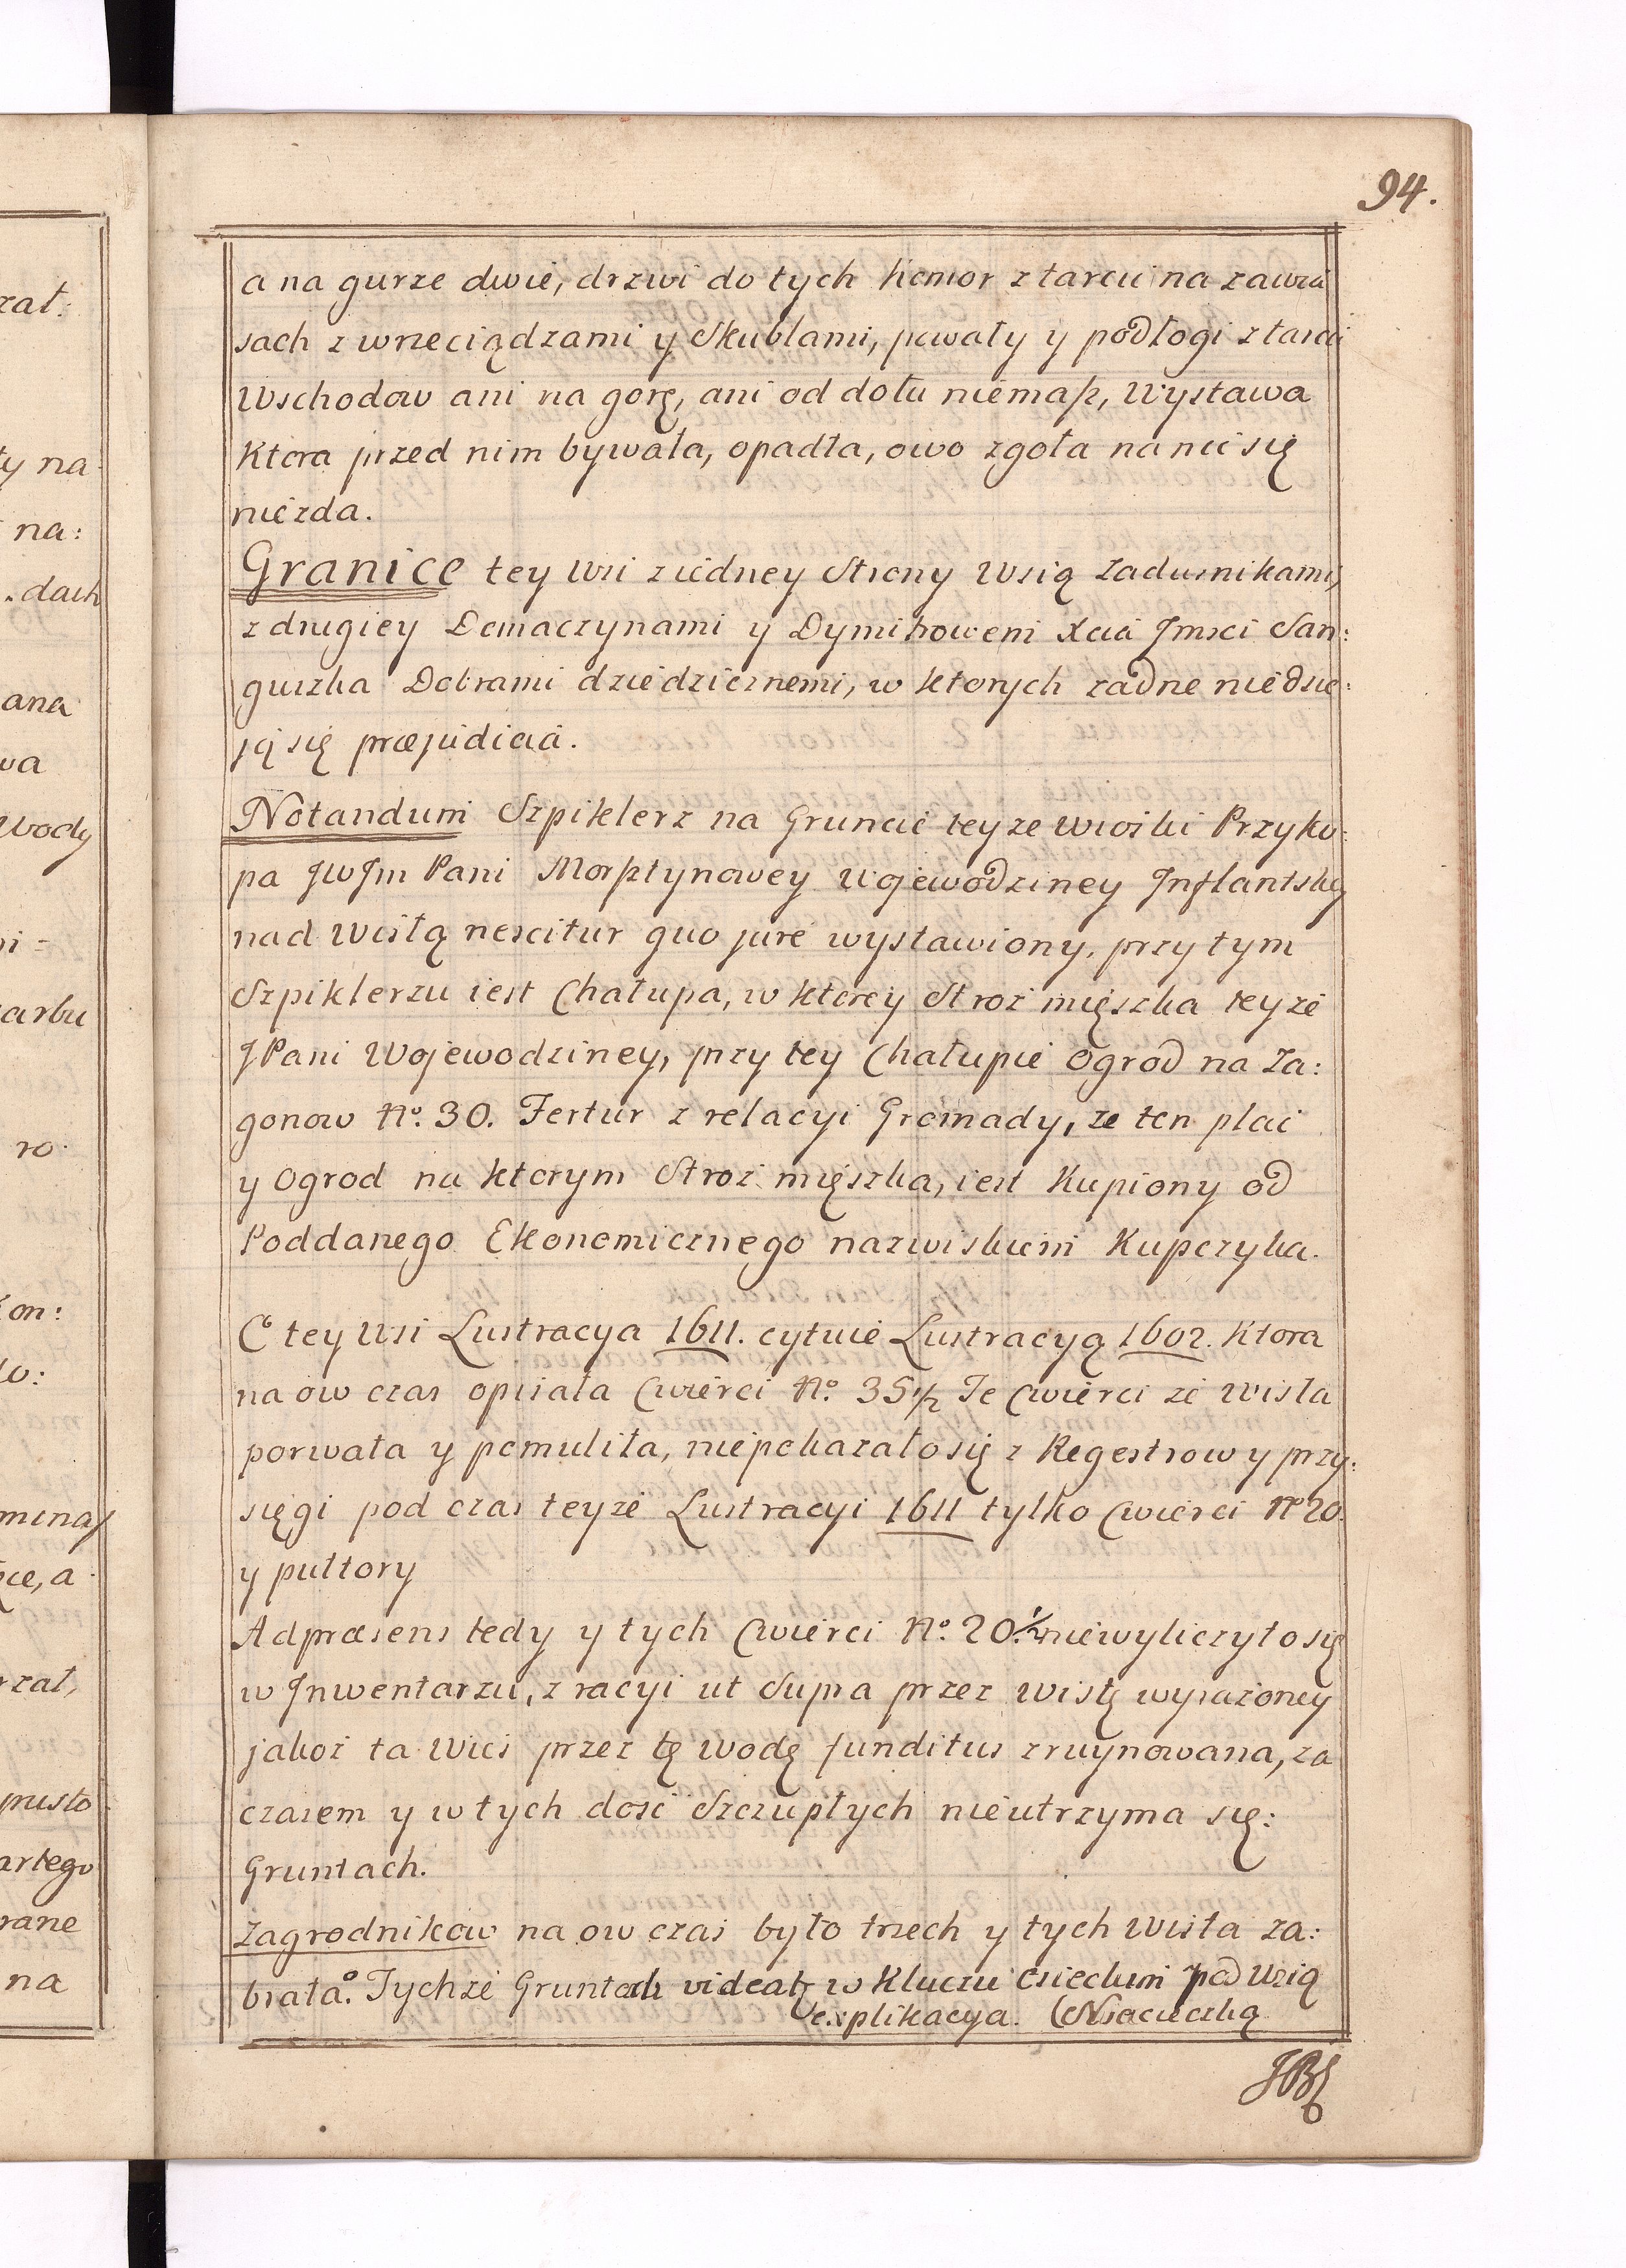 94.
a na gurze dwie, drzwi do tych komor z tarcic na zawia
sach z wrzeciądzami y Skublami, powały y podłogi z tarcic
Wschodow ani na gorę, ani od dołu niemasz, Wystawa
Ktora przed nim bywała, opadła, owo zgoła na nic się
niezda.
Granice tey Wsi ziedney Strony Wsią Zadusnikami,
z drugiey Domaczynami y Dymitrowem Xcia Jmsci San:
guszka Dobrami dziedzicznemi, w ktorych zadne niedzie:
ją się præjudicia.
Notandum Szpiklerz na Gruncie teyze Wioski Przyko:
pa JWJm Pani Morsztynowey Wojewodziney Inflantskiey
nad Wisłą nescitur quo jure wystawiony, przy tym
Szpiklerzu iest Chałupa, w ktorey Stroż mięszka teyże
JPani Wojewodziney, przy tey Chałupie Ogrod na Za:
gonow No. 30. Fertur z relacyi Gromady, ze ten plac
y Ogrod na ktorym Stroż mięszka, iest Kupiony od
Poddanego Ekonomicznego nazwiskiem Kupczyka.
O tey Wsi Lustracya 1611. cytuie Lustracyą 1602. Ktora
na ow czas opisała Cwierci No. 35 1/2 Te Cwierci ze Wisła
porwała y pomuliła, niepokazało się z Regestrow y przy:
sięgi pod czas teyże Lustracyi 1611 tylko Cwierci No 20.
y pułtory
Adpræsens tedy y tych Cwierci No. 20. 1/2 niewyliczyło się
w Inwentarzu, z racyi ut Supra przez Wisłę wyrażoney
jakoż ta Wieś przez tę wodę funditus zruynowana, za
czasem y w tych dość Szczupłych nieutrzyma się:
Gruntach.
Zagrodnikow na ow czas było trzech y tych Wisła za:
brała. o Tychże Gruntach videatur w Kluczu Osieckim pod Wsią
explikacya. (Osaczeczką